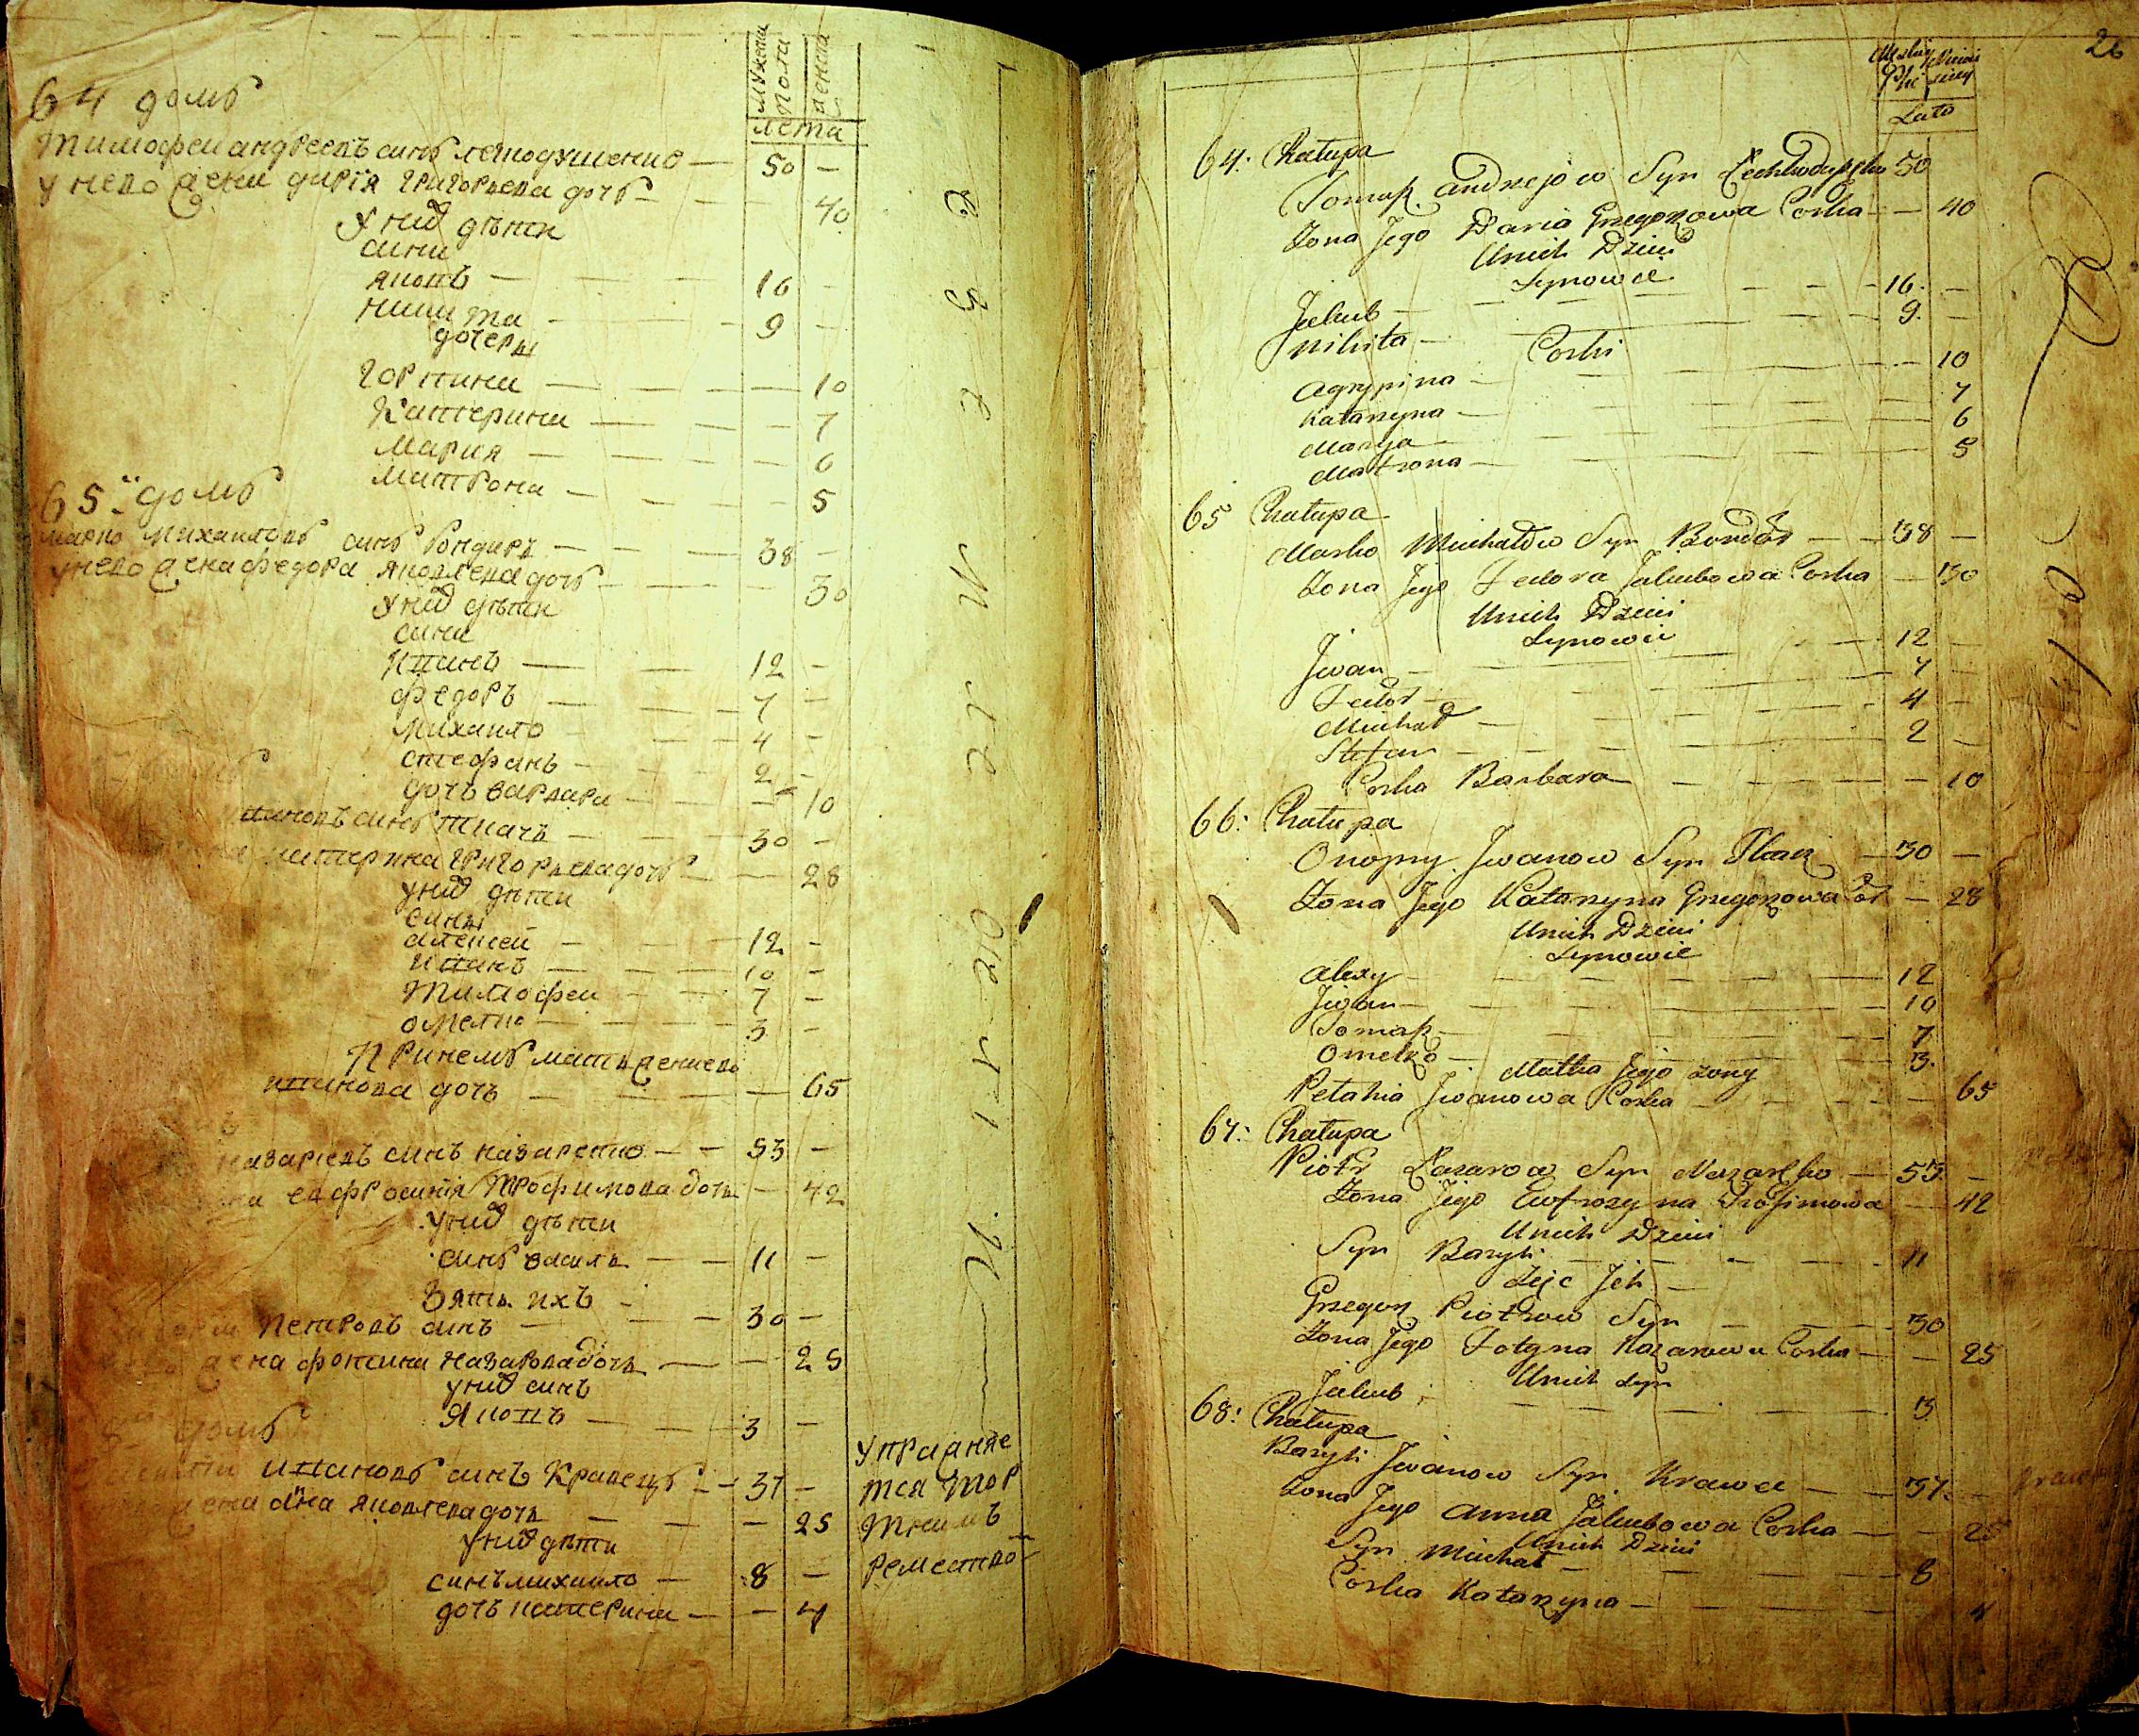 Мужеска
пола
женска
лета
64 домъ
Тимофеи андреевъ синъ легкодушенко — 50 —
у нево жена дария григорьева дочь — — 40
у них дѣти
сини
яковъ — — — 16 —
никита — — 9 —
дочеры
горпина — — — 10
катерина — — — 7
мария — — — 6
матрона — — — 5
65 домъ
марко михаиловъ синъ бондаръ — — — 38 —
у нево жена федора яковлева дочь — — 30
у них дѣти
сини
иванъ — — 12 —
федоръ — — 7 —
михаило — — 4 —
стефанъ — — 2 —
дочъ варвара — — 10
ивановъ синъ ткачъ — — 30 —
катерина григорьева дочь — — 28
у них дѣти
сины
алексей — — 12 —
иванъ — — 10 —
тимофеи — — 7 —
омелко — — 3 —
при немъ мать жени ево
иванова дочъ — — — 65
назариевъ синъ назаренко — — 53 —
евфросиния трофимова дочь — 42
у них дѣти
синъ василь — — 11 —
зять ихъ
петровъ синъ — — — 30 —
жена фотина назарова дочь — — 25
у них синъ
яковъ — — 3 —
домъ
ивановъ синъ кравецъ — 37 —
жена анна яковлева дочь — — 25
у них дѣти
синъ михаило — 8 —
дочъ катерина — — 4
упражняе
тся пор
тнимъ
ремество
26
Męskiej
Płci
Żeński
Lata
64: Chałupa
Tomasz Andrzejów Syn Lechkoduszko 50
Żona Jego Daria Grzegorzowa Corka — — 40
U nich Dzieci
Synowie
Jakub — — — 16. —
Nikita — — — 9. —
Corki
Agrypina — — — 10
Katarzyna — — — 7
Marya — — — 6
Matrona — — — 5
65 Chałupa
Marko Michałów Syn Bondar — — 38 —
Żona Jego Fedora Jakubowa Corka — 30
U nich Dzieci
Synowie
Jwan — — — 12 —
Fedor — — — 7 —
Michał — — — 4 —
Stefan — — — 2 —
Corka Barbara — — — 10
66: Chałupa
Onopry Jwanow Syn Tkacz — 30 —
Żona Jego Katarzyna Grzegorzowa Cor — 28
U nich Dzieci
Synowie
Alexy — — — 12
Jwan — — — 10
Tomasz — — — 7
Omelko — — — 3.
Matka Jego żony
Pelahia Jwanowa Corka — — — 65
67: Chałupa
Piotr Nazarow Syn Nazarenko — 53. —
Żona Jego Eufrozyna Trofimowa — 42
U nich Dzieci
Syn Bazyli — — — 11
Zięć Jch —
Grzegorz Piotrow Syn — — — 30
Żona Jego Fotyna Nazarowa Corka — — 25
U nich Syn
Jakub — — — 3
68: Chałupa
Bazyli Jwanow Syn Krawec — — 37. —
Żona Jego Anna Jakubowa Corka — — 25
U nich Dzieci
Syn Michał — — — 8
Corka Katarzyna — — — 4